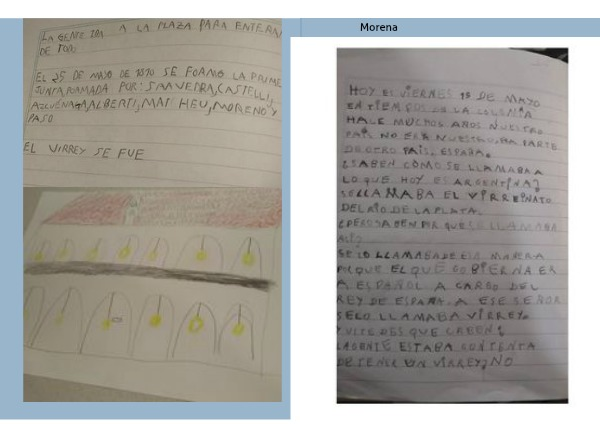 LA GENTE IBA A LA PLAZA PARA ENTERAR
DE TODO
EL 25 DE MAYO DE 1810 SE FORMO LA PRIME
JUNTA, RAMADA POR: SAAVEDRA, CASTELLI,
AZCUENAGA, ALBERTI, MAT HEU, MORENO Y
PASO
EL VIRREY SE FUE
Morena
HOY ES VIERNES 15 DE MAYO
EN TIEMPOS DE LA COLONIA
HACE MUCHOS AÑOS NUESTRO
PAÍS NO ERA NUESTRO, ERA PARTE
DE OTRO PAIS, ESPAÑA.
¿SABEN COMO SE LLAMABA A
LO QUE HOY ES ARGENTINA?
SE LLAMABA EL VIRREINATO
DEL RIO DE LA PLATA.
¿PERO SABEN POR QUE SE LLAMABA
ASI?
SE LO LLAMABA DE ESA MANERA
PORQUE EL QUE GOBIERNA ER
A ESPAÑOL A CARGO DEL
REY DE ESPAÑA. A ESE SEÑOR
SE LO LLAMABA VIRREY.
Y USTEDES QUE CREEN?
LA GENTE ESTABA CONTENTA
DE TENER UN VIRREY, NO